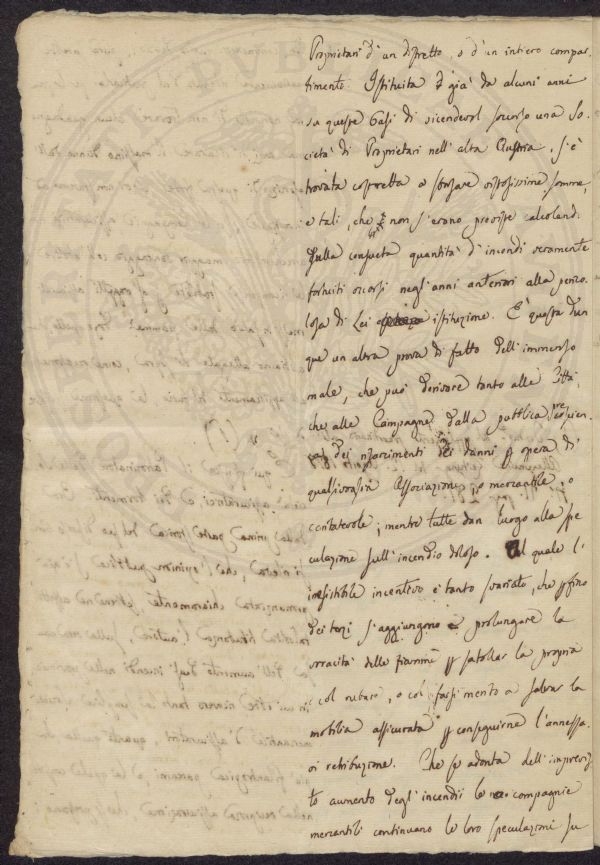 Proprietari d'un distretto, o d'un intiero compar-
timento. Istituita di già da alcuni anni
su queste basi di vicendevol soccorso una So-
cietà di Proprietari nell'alta Austria, s'è
trovata costretta a sborsare vistosissime somme,
e tali, che non s'erano previste calcoland.
sulla consueta quantità d'incendi veramente
fortuiti occorsi negli anni anteriori alla perico-
losa di Lei istituzione. E' questa dun
que un'altra prova di fatto dell'immenso
male, che può derivare tanto alle Città,
che alle Campagne dalla pubblica
dei risarcimenti dei danni p opera di
qualsivoglia Associazione, o mercantile, o
caritatevole; mentre tutte dan luogo alla spe
culazione sull'incendio doloso. Al quale l'i
rresistibile incentivo è tanto svariato, che pfino
dei terzi s'aggiungono a prolungare la
voracità delle fiamme p satollar la propria
col rubare, o col farsi merito a salvar la
mobilia assicurata p conseguirne l'annessa-
vi retribuzione. Che se adonta dell'improvvi
to aumento degl'incendii le compagnie
mercantili continuano le loro speculazioni su